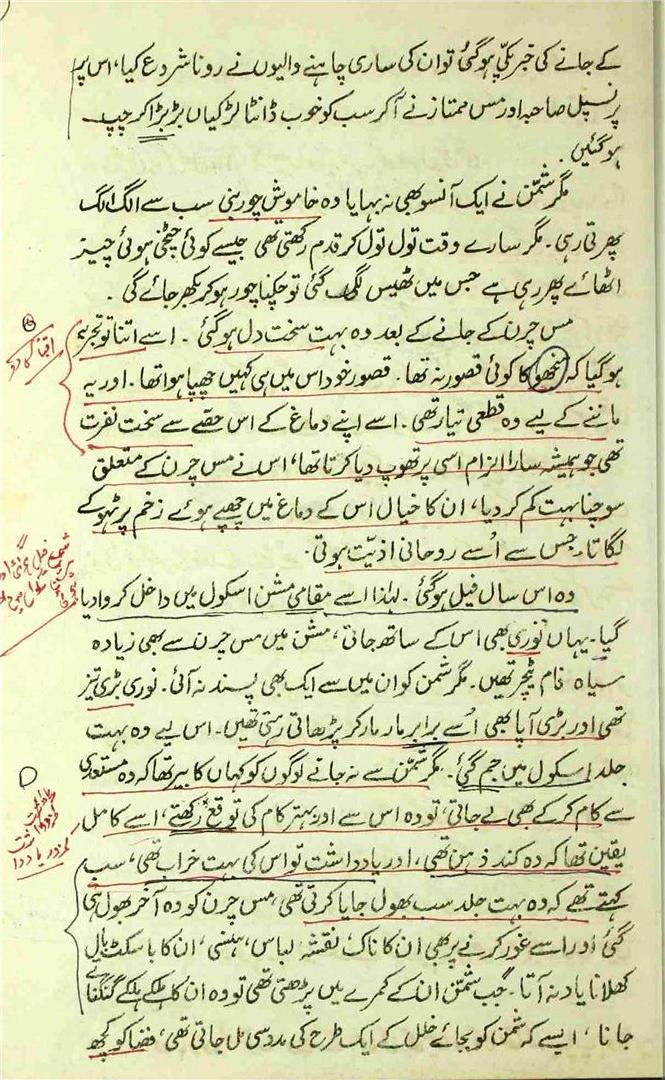 کے جانے کی خبر پکّی ہوگئی تو ان کی ساری چاہنے والیوں نے رونا شروع کیا، اس پر
پرنسپل صاحبہ اور مس ممتاز نے آکر سب کو خوب ڈانٹا لڑکیاں ہڑبڑا کر چپ
ہوگئیں.
مگر شمّن نے ایک آنسو بھی نہ بہایا وہ خاموش چور بنی سب سے الگ الگ
پھرتی رہی۔ مگر سارے وقت تول تول کر قدم رکھتی تھی جیسے کوئی چٹخی ہوئی چیز
اٹھائے پھر رہی ہے جس میں ٹھیس لگ گئی تو چکنا چور ہو کر بکھر جائے گی۔
مس چرن کے جانے کے بعد وہ بہت سخت دل ہوگئی۔ اسے اتنا تو تجربہ
ہوگیا کہ منجھو کا کوئی قصور نہ تھا۔ قصور خود اس میں ہی کہیں چھپا ہوا تھا۔ اور یہ
ماننے کے لیے وہ قطعی تیار تھی۔ اسے اپنے دماغ کے اس حصّے سے سخت نفرت
تھی جو ہمیشہ سارا الزام اسی پر تھوپ دیا کرتا تھا، اس نے مس چرن کے متعلق
سوچنا بہت کم کر دیا، ان کا خیال اس کے دماغ میں چھپے ہوئے زخم پر ٹہوکے
لگاتا، جس سے اُسے روحانی اذیّت ہوتی.
وہ اس سال فیل ہوگئی۔ لہٰذا اسے مقامی مشن اسکول میں داخل کروا دیا
گیا۔ یہاں نوری بھی اس کے ساتھ جاتی، مشن میں مس چرن سے بھی زیادہ
سیاہ فام ٹیچر تھیں۔ مگر شمن کو ان میں سے ایک بھی پسند نہ آئی۔ نوری بڑی تیز
تھی اور بڑی آپا بھی اُسے برابر مار مار کر پڑھاتی رہتی تھیں۔ اس لیے وہ بہت
جلد اسکول میں جم گئی۔ مگر شمّن سے نہ جانے لوگوں کو کہاں کا بیر تھا کہ وہ مستعدی
سے کام کر کے بھی لے جاتی، تو وہ اس سے اور بہتر کام کی توقع رکھتے، اسے کامل
یقین تھا کہ وہ کند ذہن تھی، اور یادداشت تو اس کی بہت خراب تھی، سب
کہتے تھے کہ وہ بہت جلد سب بھول جایا کرتی تھی، مس چرن کو وہ آخر بھول ہی
گئی اور اسے غور کرنے پر بھی ان کا ناک نقشہ لباس، ہنسی، ان کا باسکٹ بال
کھلانا یاد نہ آتا۔ جب شمّن ان کے کمرے میں پڑھتی تھی تو وہ ان کا ہلکے ہلکے گنگناتے
جانا، ایسے کہ شمن کو بجائے خلل کے ایک طرح کی مدد سی مل جاتی تھی، فضا کو کچھ